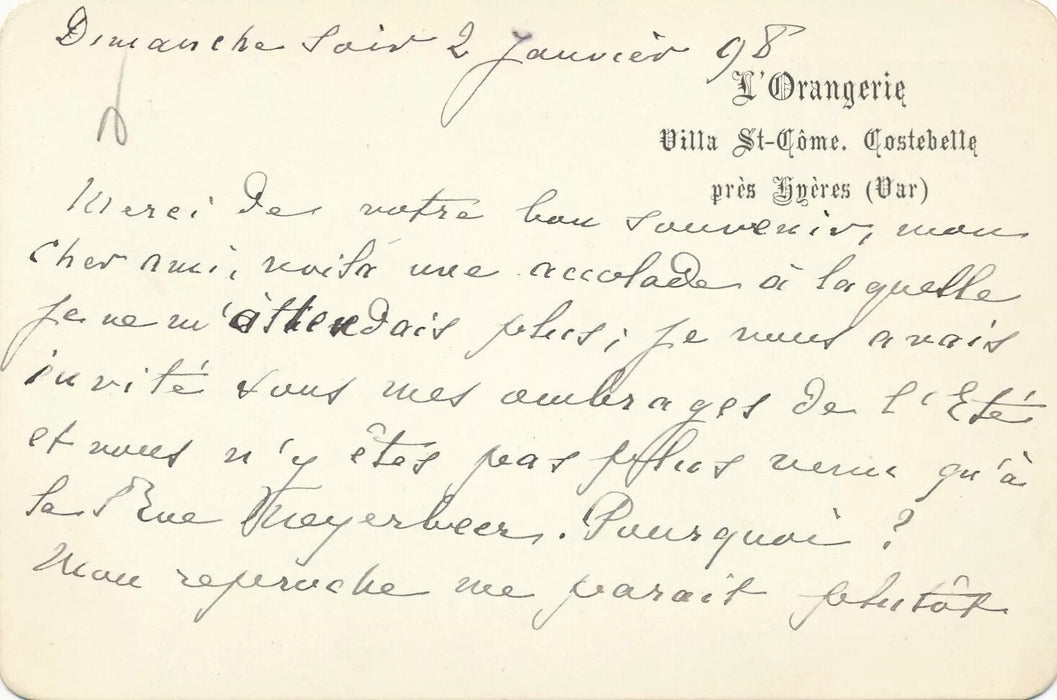 Dimanche soir 2 janvier 98
L'Orangerie
Villa St-Côme. Costebelle
près Hyères (Var)
Merci de votre bon souvenir, mon
cher ami, voilà une accolade à laquelle
je ne m'attendais plus; je vous avais
invité sous mes ombrages de l'Eté
et vous n'y êtes pas plus venu qu'à
la Rue Meyerbeer. Pourquoi ?
Mon reproche me parait plutôt